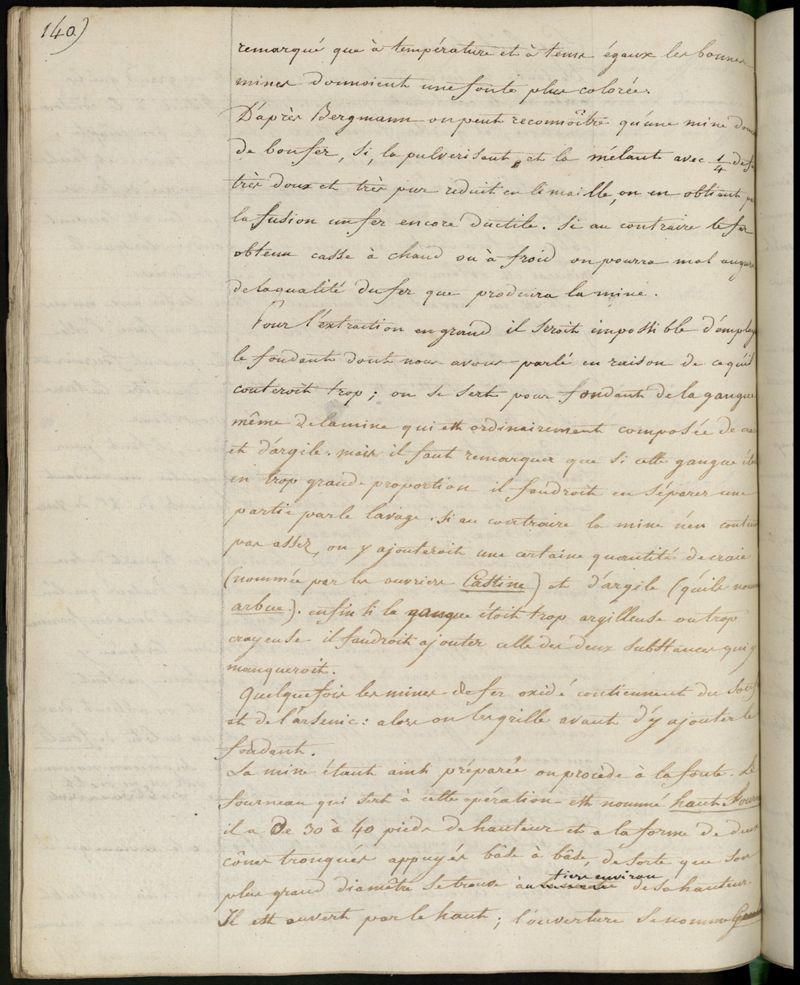 140)
remarqué que à température et à tems égaux les bonnes
mines donnoient une fonte plus colorée.
D'après Bergmann on peut reconnoître qu'une mine donne
de bon fer, si, la pulverisant, et la mélant avec 1/4 de fer
très doux et très pur reduit en limaille, on en obtient par
la fusion un fer encore ductile. Si au contraire le fer
obtenu casse à chaud ou à froid on pourra mal augurer
de la qualité du fer que produira la mine.
Pour l'extraction en grand il seroit impossible d'employer
le fondant dont nous avons parlé en raison de ce qu'il
couteroit trop ; on se sert pour fondant de la gangue
même de la mine qui est ordinairement composée de
et d'argile. mais il faut remarquer que si cette gangue
en trop grande proportion il faudroit en séparer une
partie par le lavage. si au contraire la mine n'en
pas assez, on y ajouteroit une certaine quantité de craie
(nommée par les ouvriers Castine) et d'argile (qu'ils
arbue). enfin si la gangue étoit trop argilleuse ou trop
crayeuse il faudroit ajouter celle des deux substances qui y
manqueroit.
Quelquefois les mines de fer oxidé contiennent du
et de l'arsenic : alors on les grille avant d'y ajouter le
fondant.
La mine étant ainsi préparée on procède à la fonte. Le
fourneau qui sert à cette opération est nommé haut
il a De 30 à 40 pieds de hauteur et a la forme de deux
cônes tronqués appuyés bâse à bâse, de sorte que son
plus grand diamêtre se trouve au tiers environ de sa hauteur.
Il est ouvert par le haut ; l'ouverture se nomme